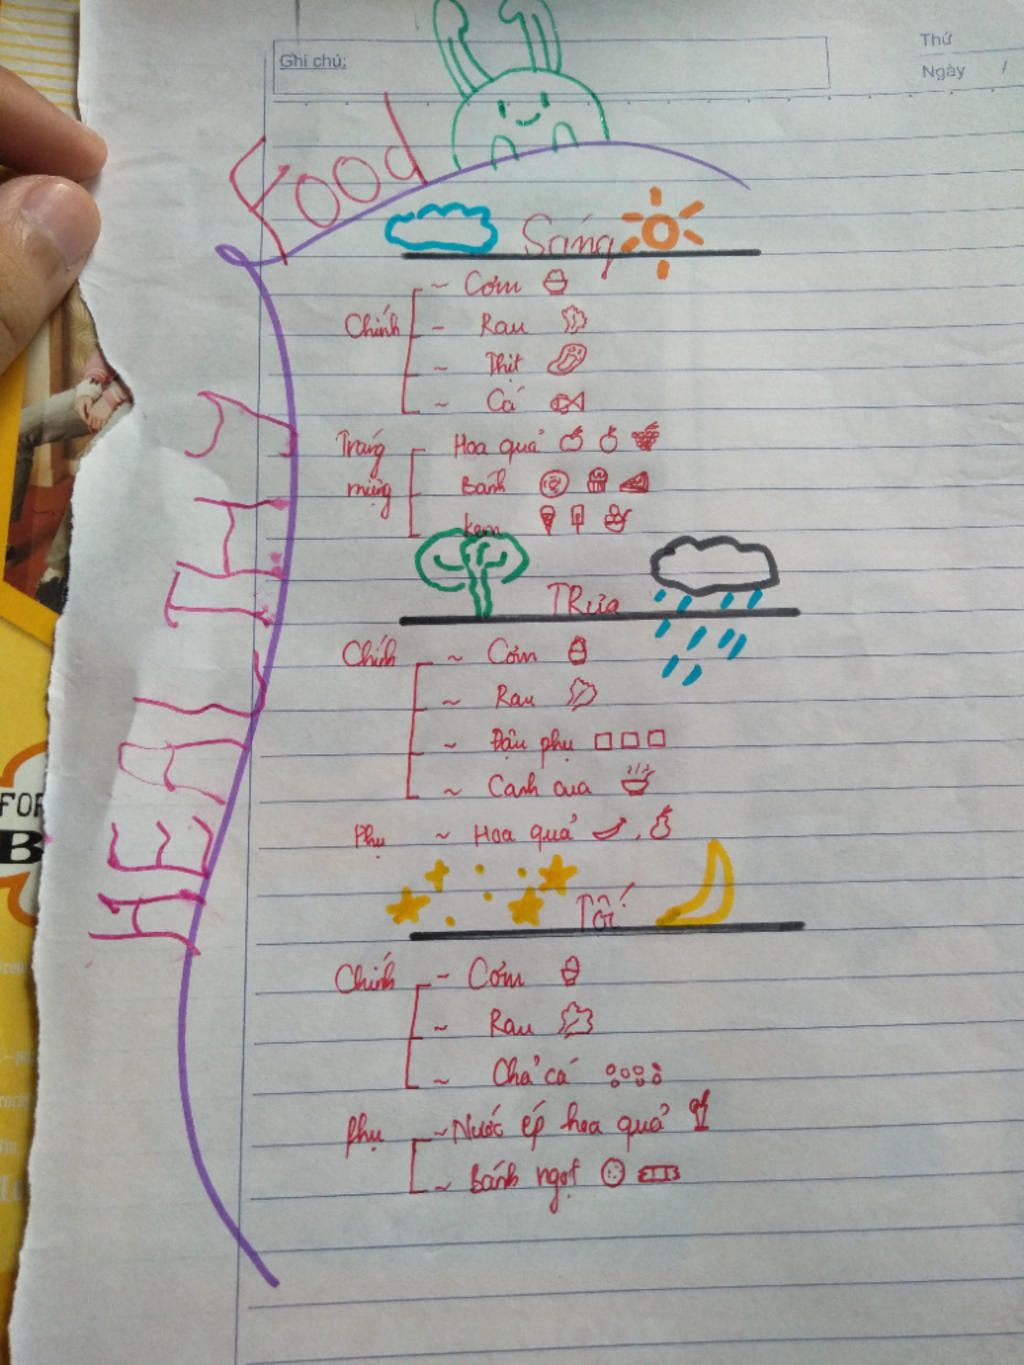 Ghi chú:
Thứ
Ngày /
Food
HEALTHY
Sáng
Chính
~ Cơm
- Rau
~ Thịt
~ Cá
Tráng miệng
Hoa quả
Bánh
kem
TRưa
Chính
~ Cơm
~ Rau
~ Đậu phụ
~ Canh cua
Phụ ~ Hoa quả
Tối
Chính
- Cơm
~ Rau
~ Chả cá
Phụ
~ Nước ép hoa quả
~ Bánh ngọt
FOR
B